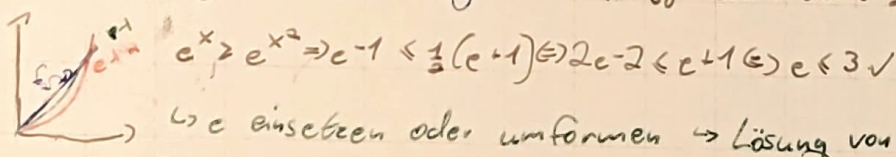 e^x ≥ e^{x^2} ⇒ e-1 ≤ 1/2(e+1) ⇔ 2e-2 ≤ e+1 ⇔ e ≤ 3 ✓
↳ e einsetzen oder umformen → Lösung von